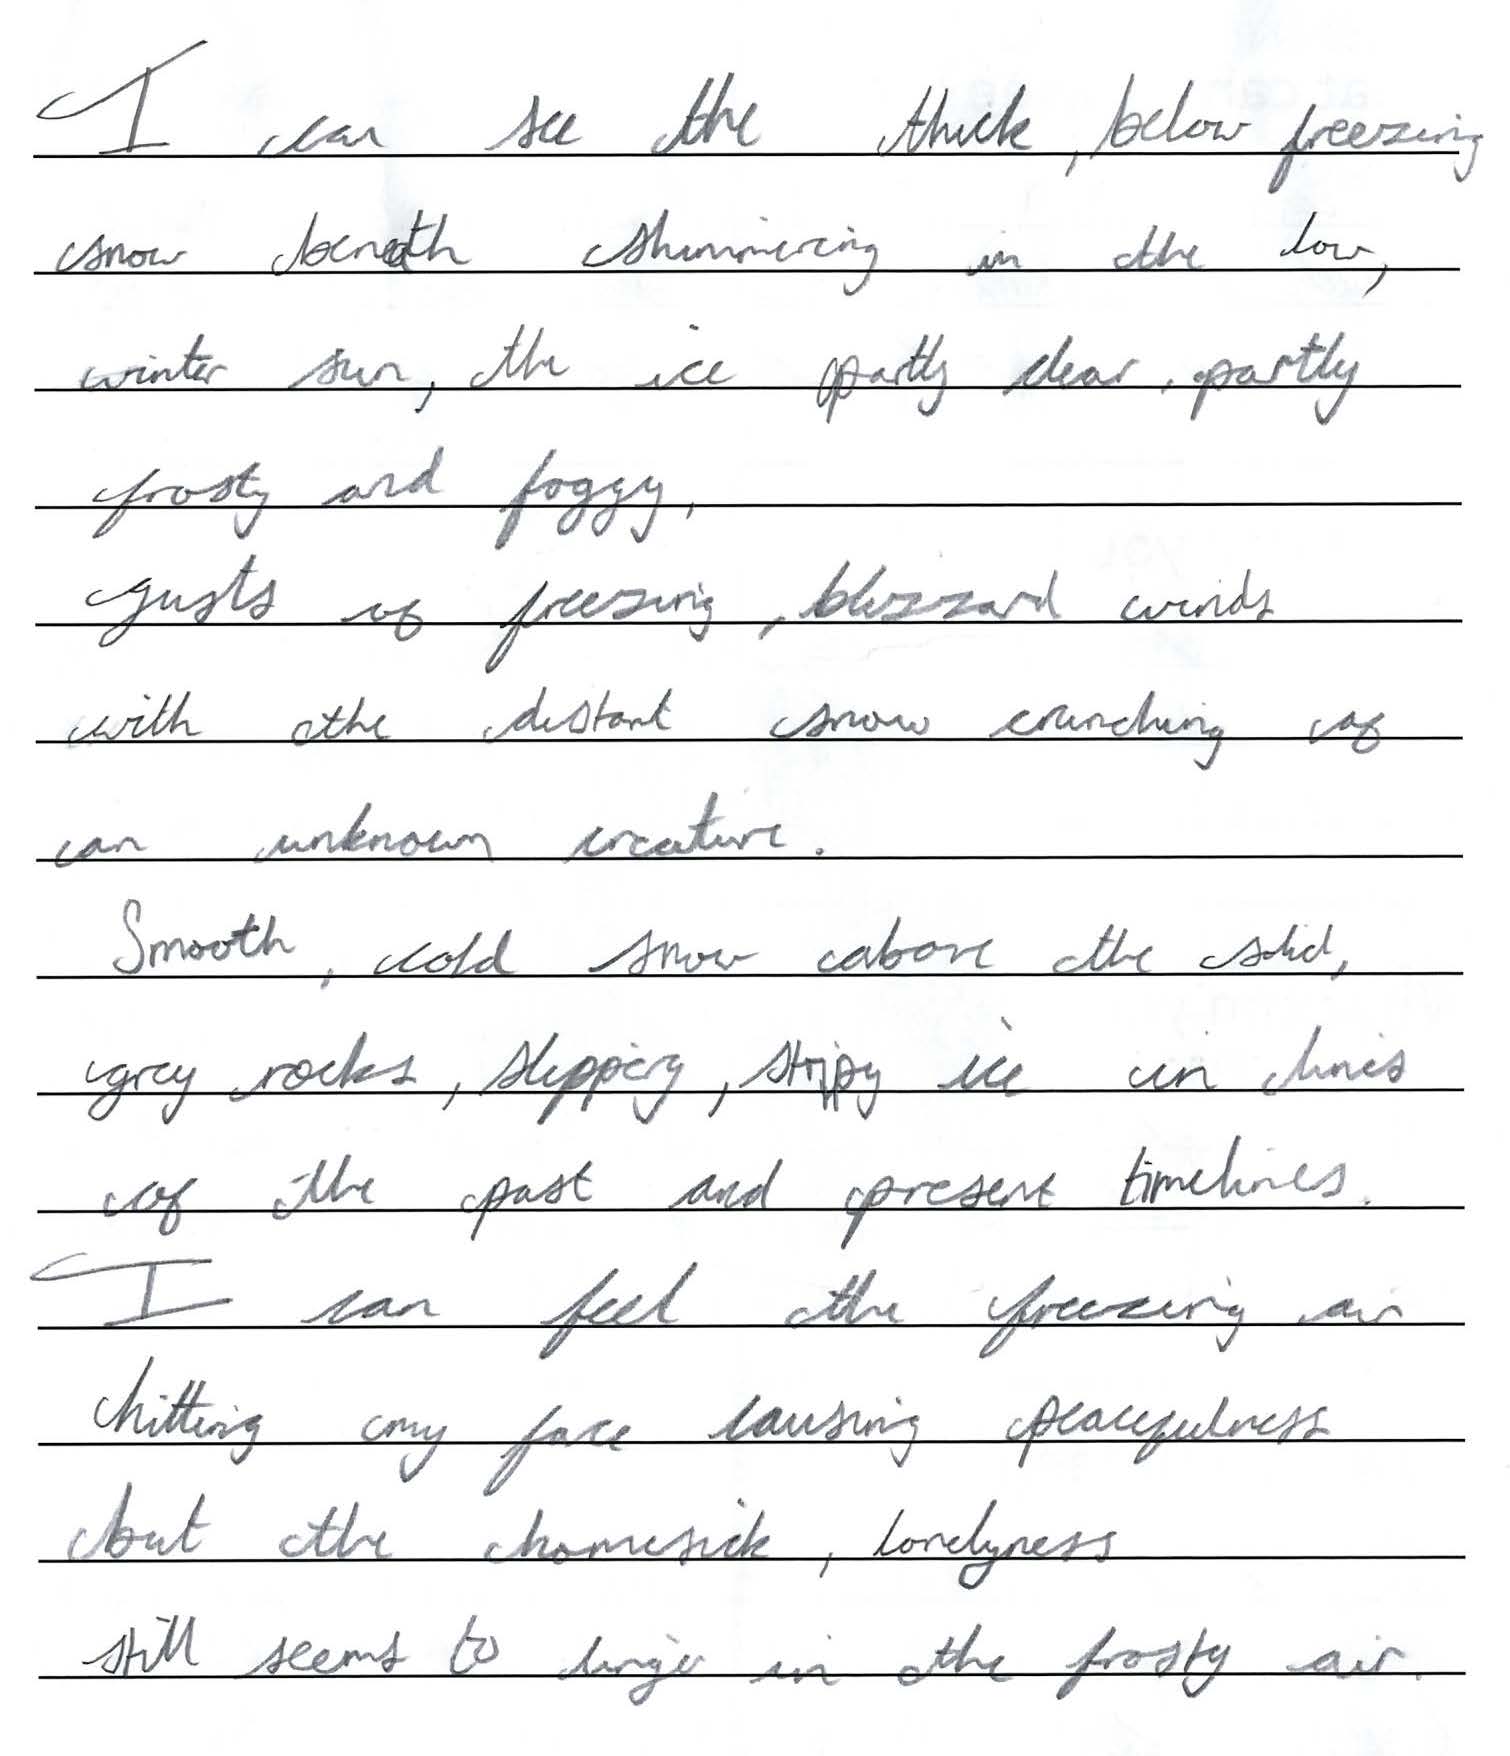 I can see the thick, below freezing
snow beneath shimmering in the low,
winter sun, the ice partly clear, partly
frosty and foggy,
gusts of freezing, blizzard winds
with the distant snow crunching of
an unknown creature.
Smooth, cold snow above the solid,
grey rocks, slippery, stripy ice in lines
of the past and present timelines.
I can feel the freezing air
hitting my face causing peacefulness
but the homesick, lonelyness
still seems to linger in the frosty air.